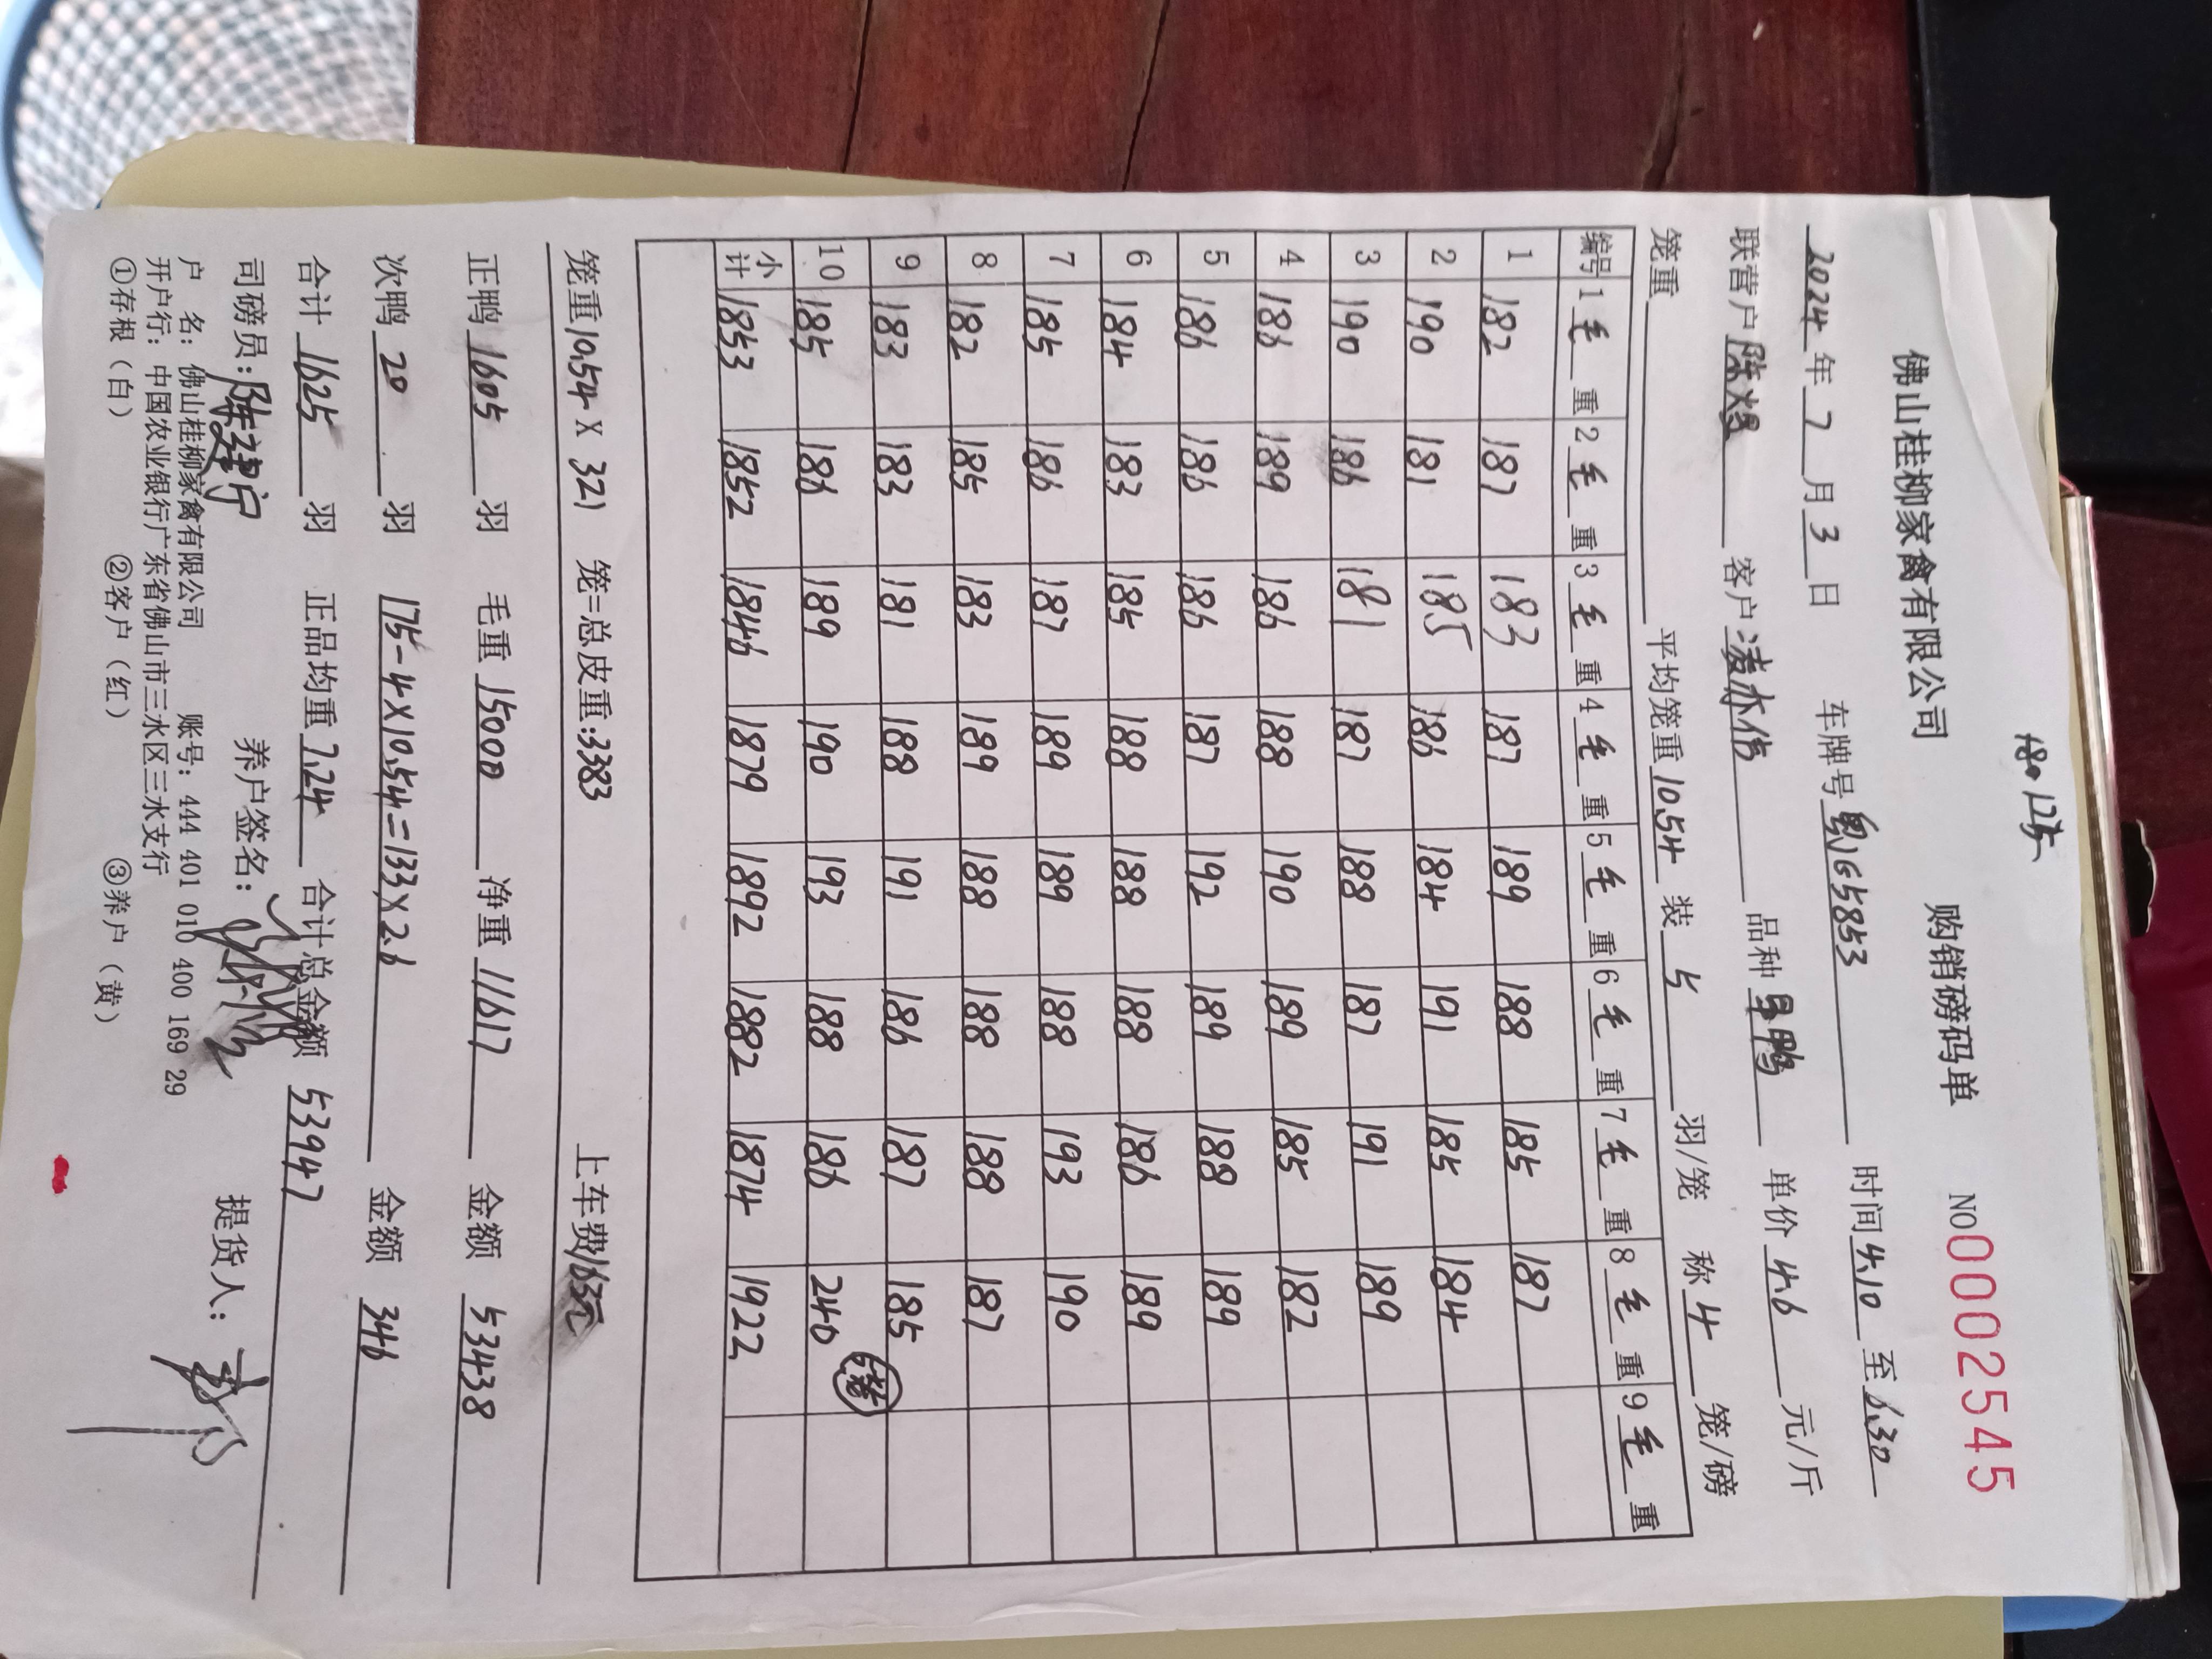 佛山桂柳家禽有限公司 购销磅码单 NO 0002545
2024年7月3日 车牌号粤G5853 时间4:10至6:30
联营户 陈 客户 凌亦伟 品种 单价4.6元/斤
笼重 平均笼重10.54 装5羽/笼 称4笼/磅
编号 1毛重 2毛重 3毛重 4毛重 5毛重 6毛重 7毛重 8毛重 9毛重
1 182 187 183 187 189 188 185 187
2 190 181 185 186 184 191 185 184
3 190 186 181 187 188 187 191 189
4 186 189 186 188 190 189 185 182
5 186 186 186 187 192 189 188 189
6 184 183 185 188 188 188 186 189
7 185 186 187 189 189 188 193 190
8 182 185 183 189 188 188 188 187
9 183 183 181 188 191 186 187 185
10 185 186 189 190 193 188 186 240
小计 1853 1852 1846 1879 1892 1882 1874 1922
笼重10.54 X 321 笼=总皮重:3383 上车费163元
正鸭1605羽 毛重15000 净重11617 金额53438
次鸭20羽 175-4X10.54=133X2.6 金额346
合计1625羽 正品均重7.24 合计总金额53947
司磅员: 养户签名: 提货人:
户 名: 佛山桂柳家禽有限公司 账号: 444 401 010 400 169 29
开户行: 中国农业银行广东省佛山市三水区三水支行
①存根（白） ②客户（红） ③养户（黄）